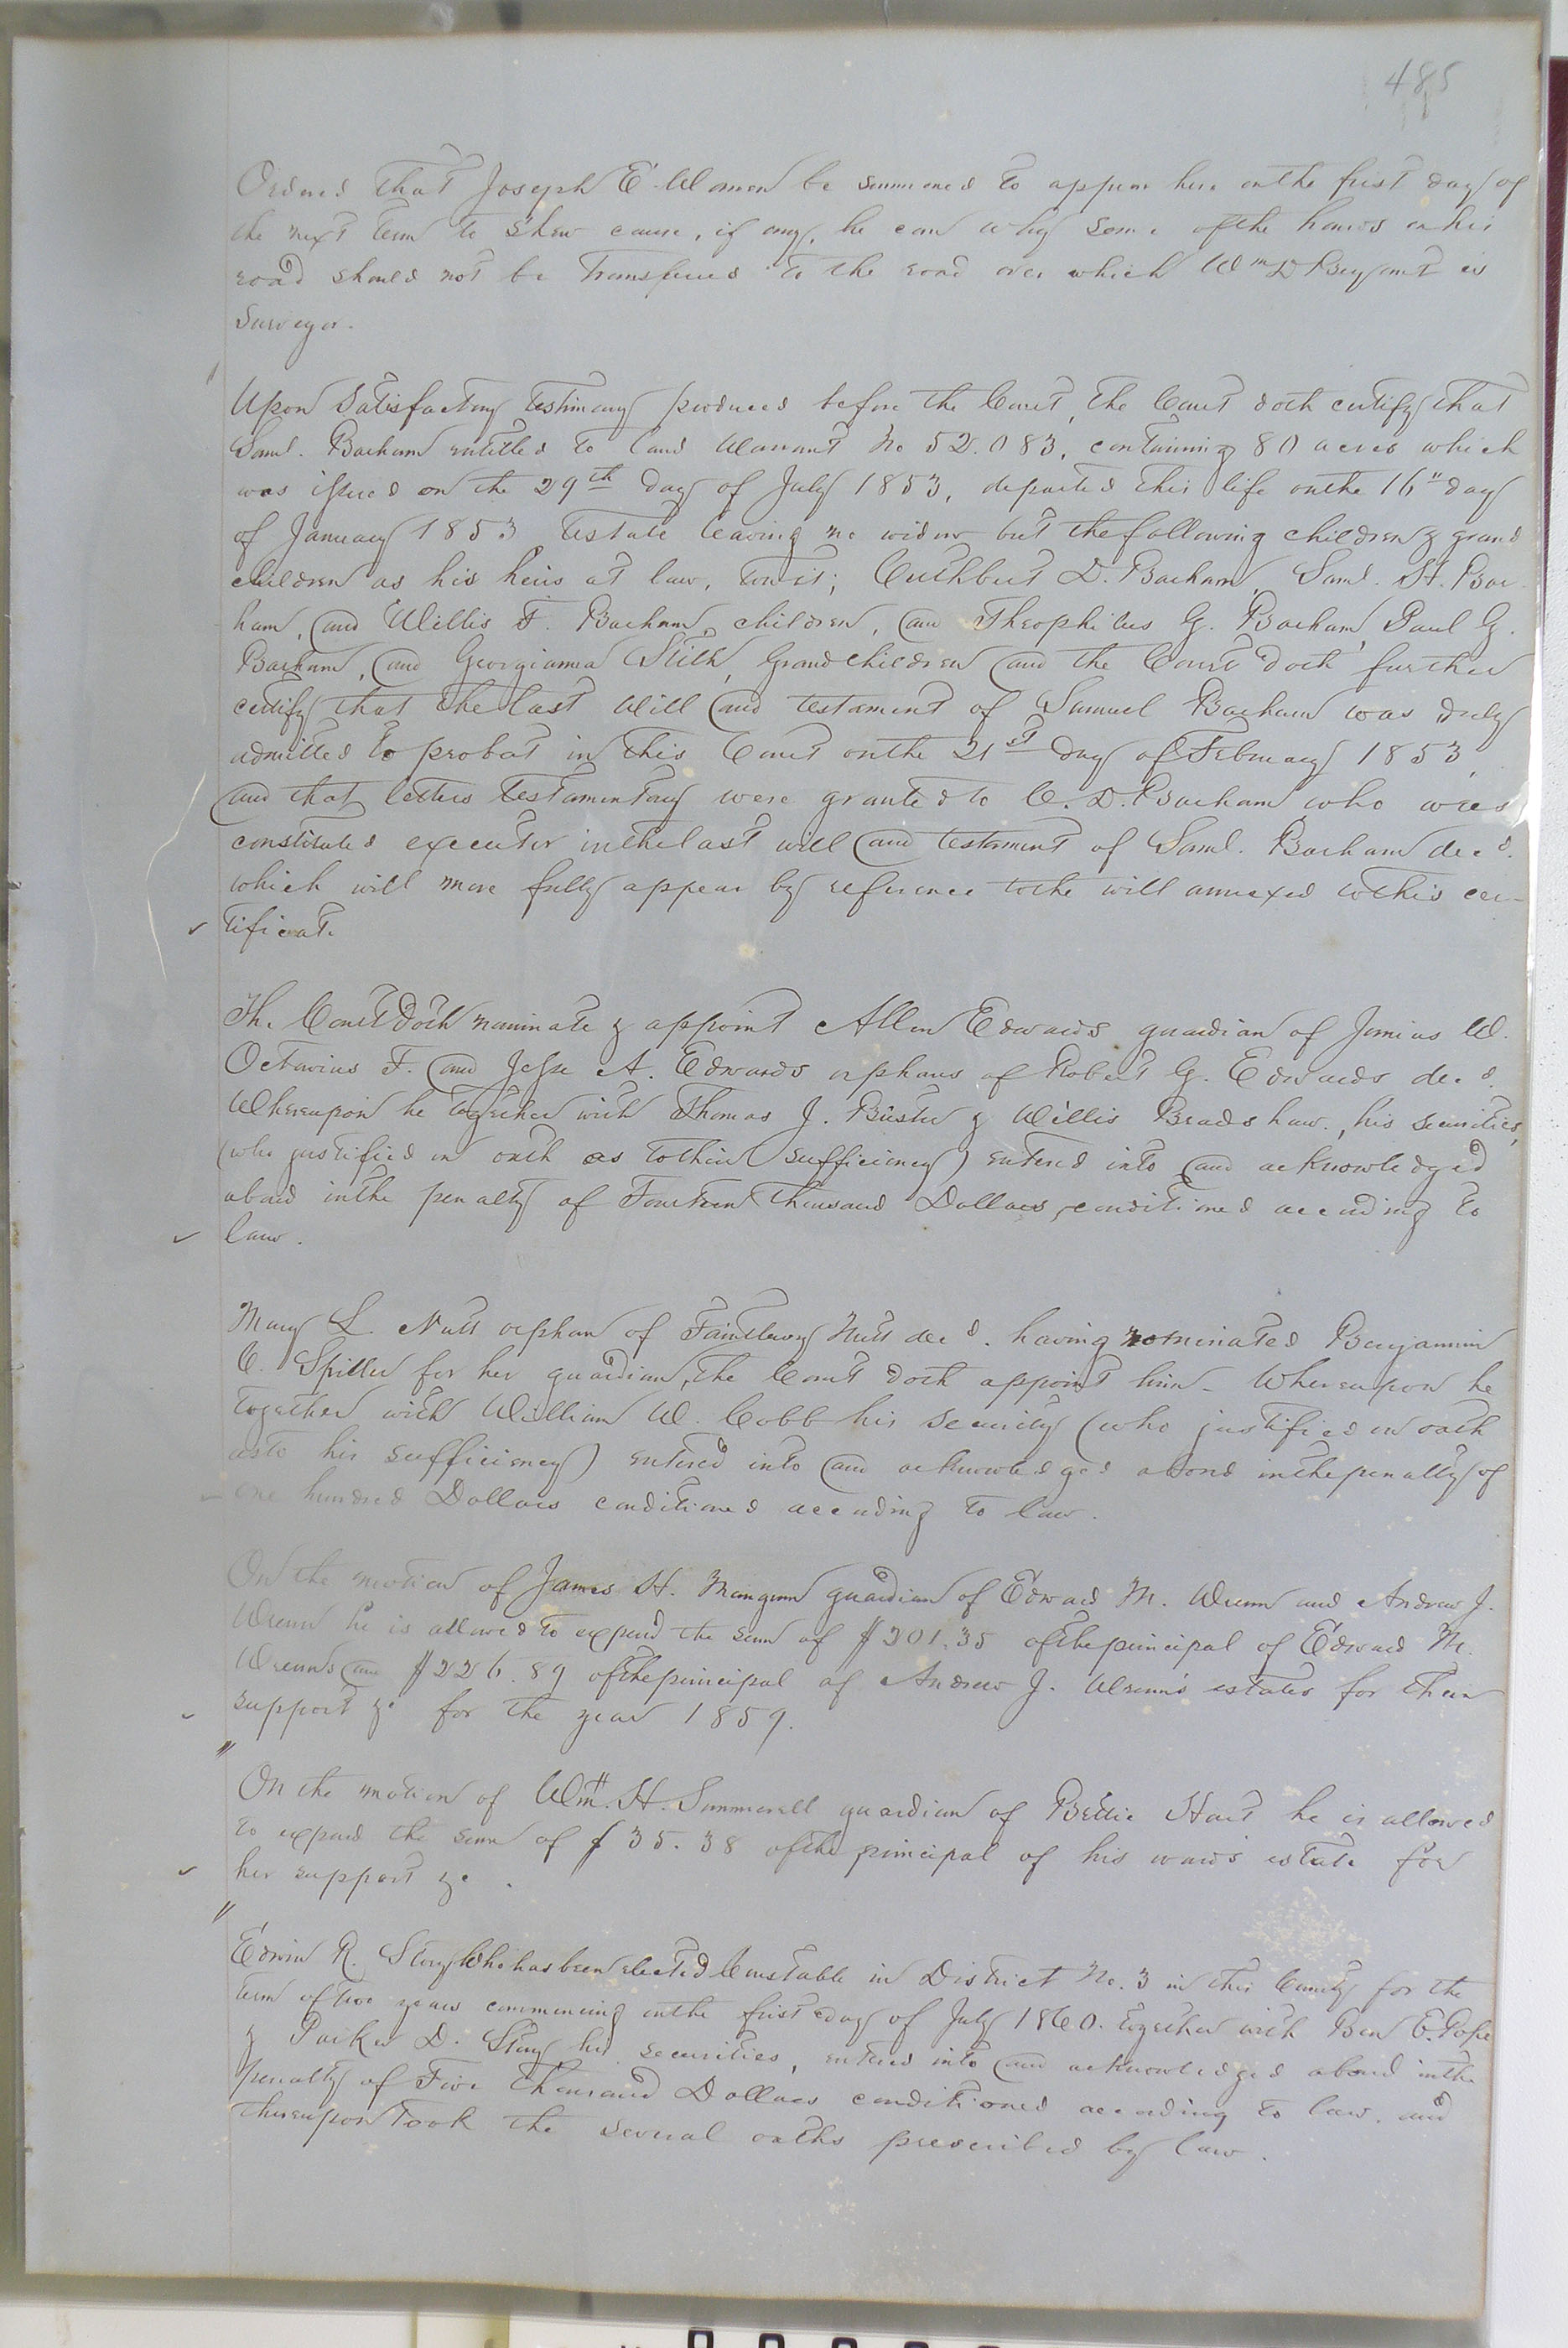 485
Ordered that Joseph E Women be summoned to appear here on the first day of
the next term to shew cause, if any, he can why some of the hands on his
road should not be transferred to the road over which Wm D Bryant is
Surveyor.
Upon Satisfactory testimony produced before the Court, the Court doth certify that
Saml. Barham entitled to land Warrant No 52.083, containing 80 acres which
was issued on the 29th day of July 1853, departed this life on the 16" day
of January 1853 testate leaving no widow but the following children & grand
children as his heirs at law, towit; Cuthbert D. Barham, Saml. H. Bar
ham, and Willis F. Barham, children, and Theophilus G. Barham, Paul G.
Barham, and Georgianna Stith, Grandchildren and the Court doth further
certify that the last Will and testament of Samuel Barham was duly
admitted to probat in this Court on the 21st day of February 1853,
and that letters testamentary were granted to C. D. Barham who was
constituted executor in the last will and testament of Saml. Barham decd.
which will more fully appear by reference to the will annexed to this cer-
tificate
The Court doth nominate & appoint Allen Edwards guardian of Junius W.
Octavius F. and Jesse A. Edwards orphans of Robert G. Edwards decd.
Whereupon he together with Thomas J. Pusley & Willis Bradshaw, his securities,
(who justified on oath as to their sufficiency) entered into and acknowledged
abond in the penalty of Fourteen Thousand Dollars, conditioned according to
law.
Mary L. Nutt orphan of Nutt decd. having nominated Benjamin
C. Spiller for her guardian, the Court doth appoint him - Whereupon he
together with William W. Cobb his security (who justified on oath
as to his sufficiency) entered into and acknowledged abond in the penalty of
one hundred Dollars conditioned according to law.
On the motion of James H. Mangum guardian of Edward M. Wrenn and Andrew J.
Wrenn he is allowed to expend the sum of $201.35 of the principal of Edward M.
Wrenns and $226.89 of the principal of Andrew J. Wrenn's estates for their
support &c for the year 1859.
On the motion of Wm. H. Summerell guardian of Bettie Hart he is allowed
to expend the sum of $35.38 of the principal of his ward's estate for
her support &c.
Edwin R. Story Who has been elected Constable in District No. 3 in this County for the
term of two years commencing on the first day of July 1860. together with Ben E. Pope
& Parker D. Story his securities, entered into and acknowledged abond in the
penalty of Five Thousand Dollars conditioned according to law. and
thereupon took the several oaths prescribed by law.